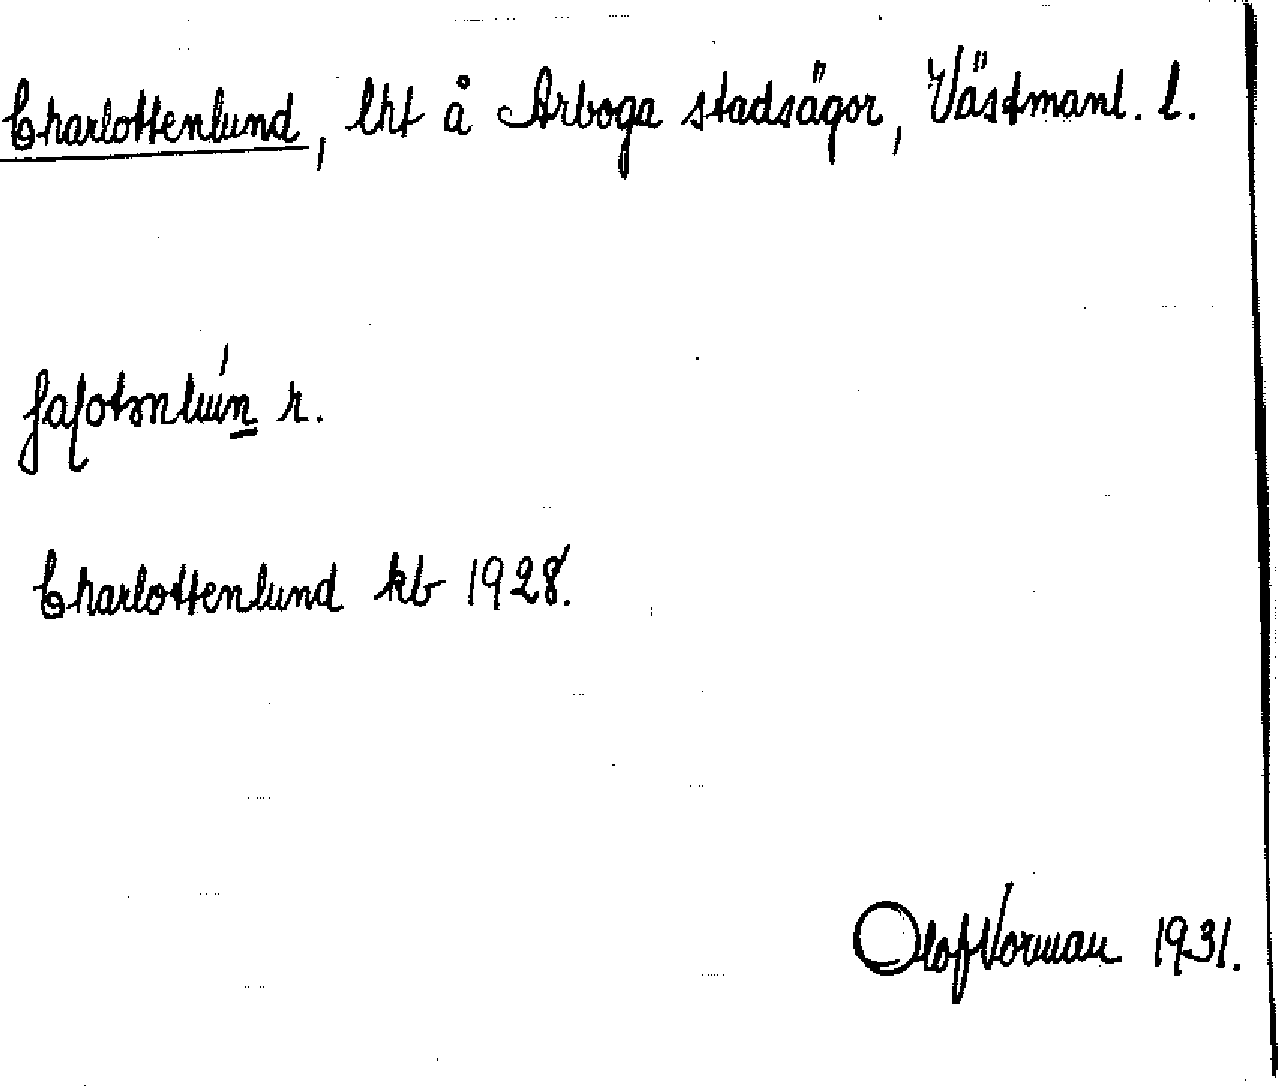 Charlottenlund, lht å Arboga stadsägor, Västmanl. l.
r.
Charlottenlund kb 1928.
Olof Vorman 1931.